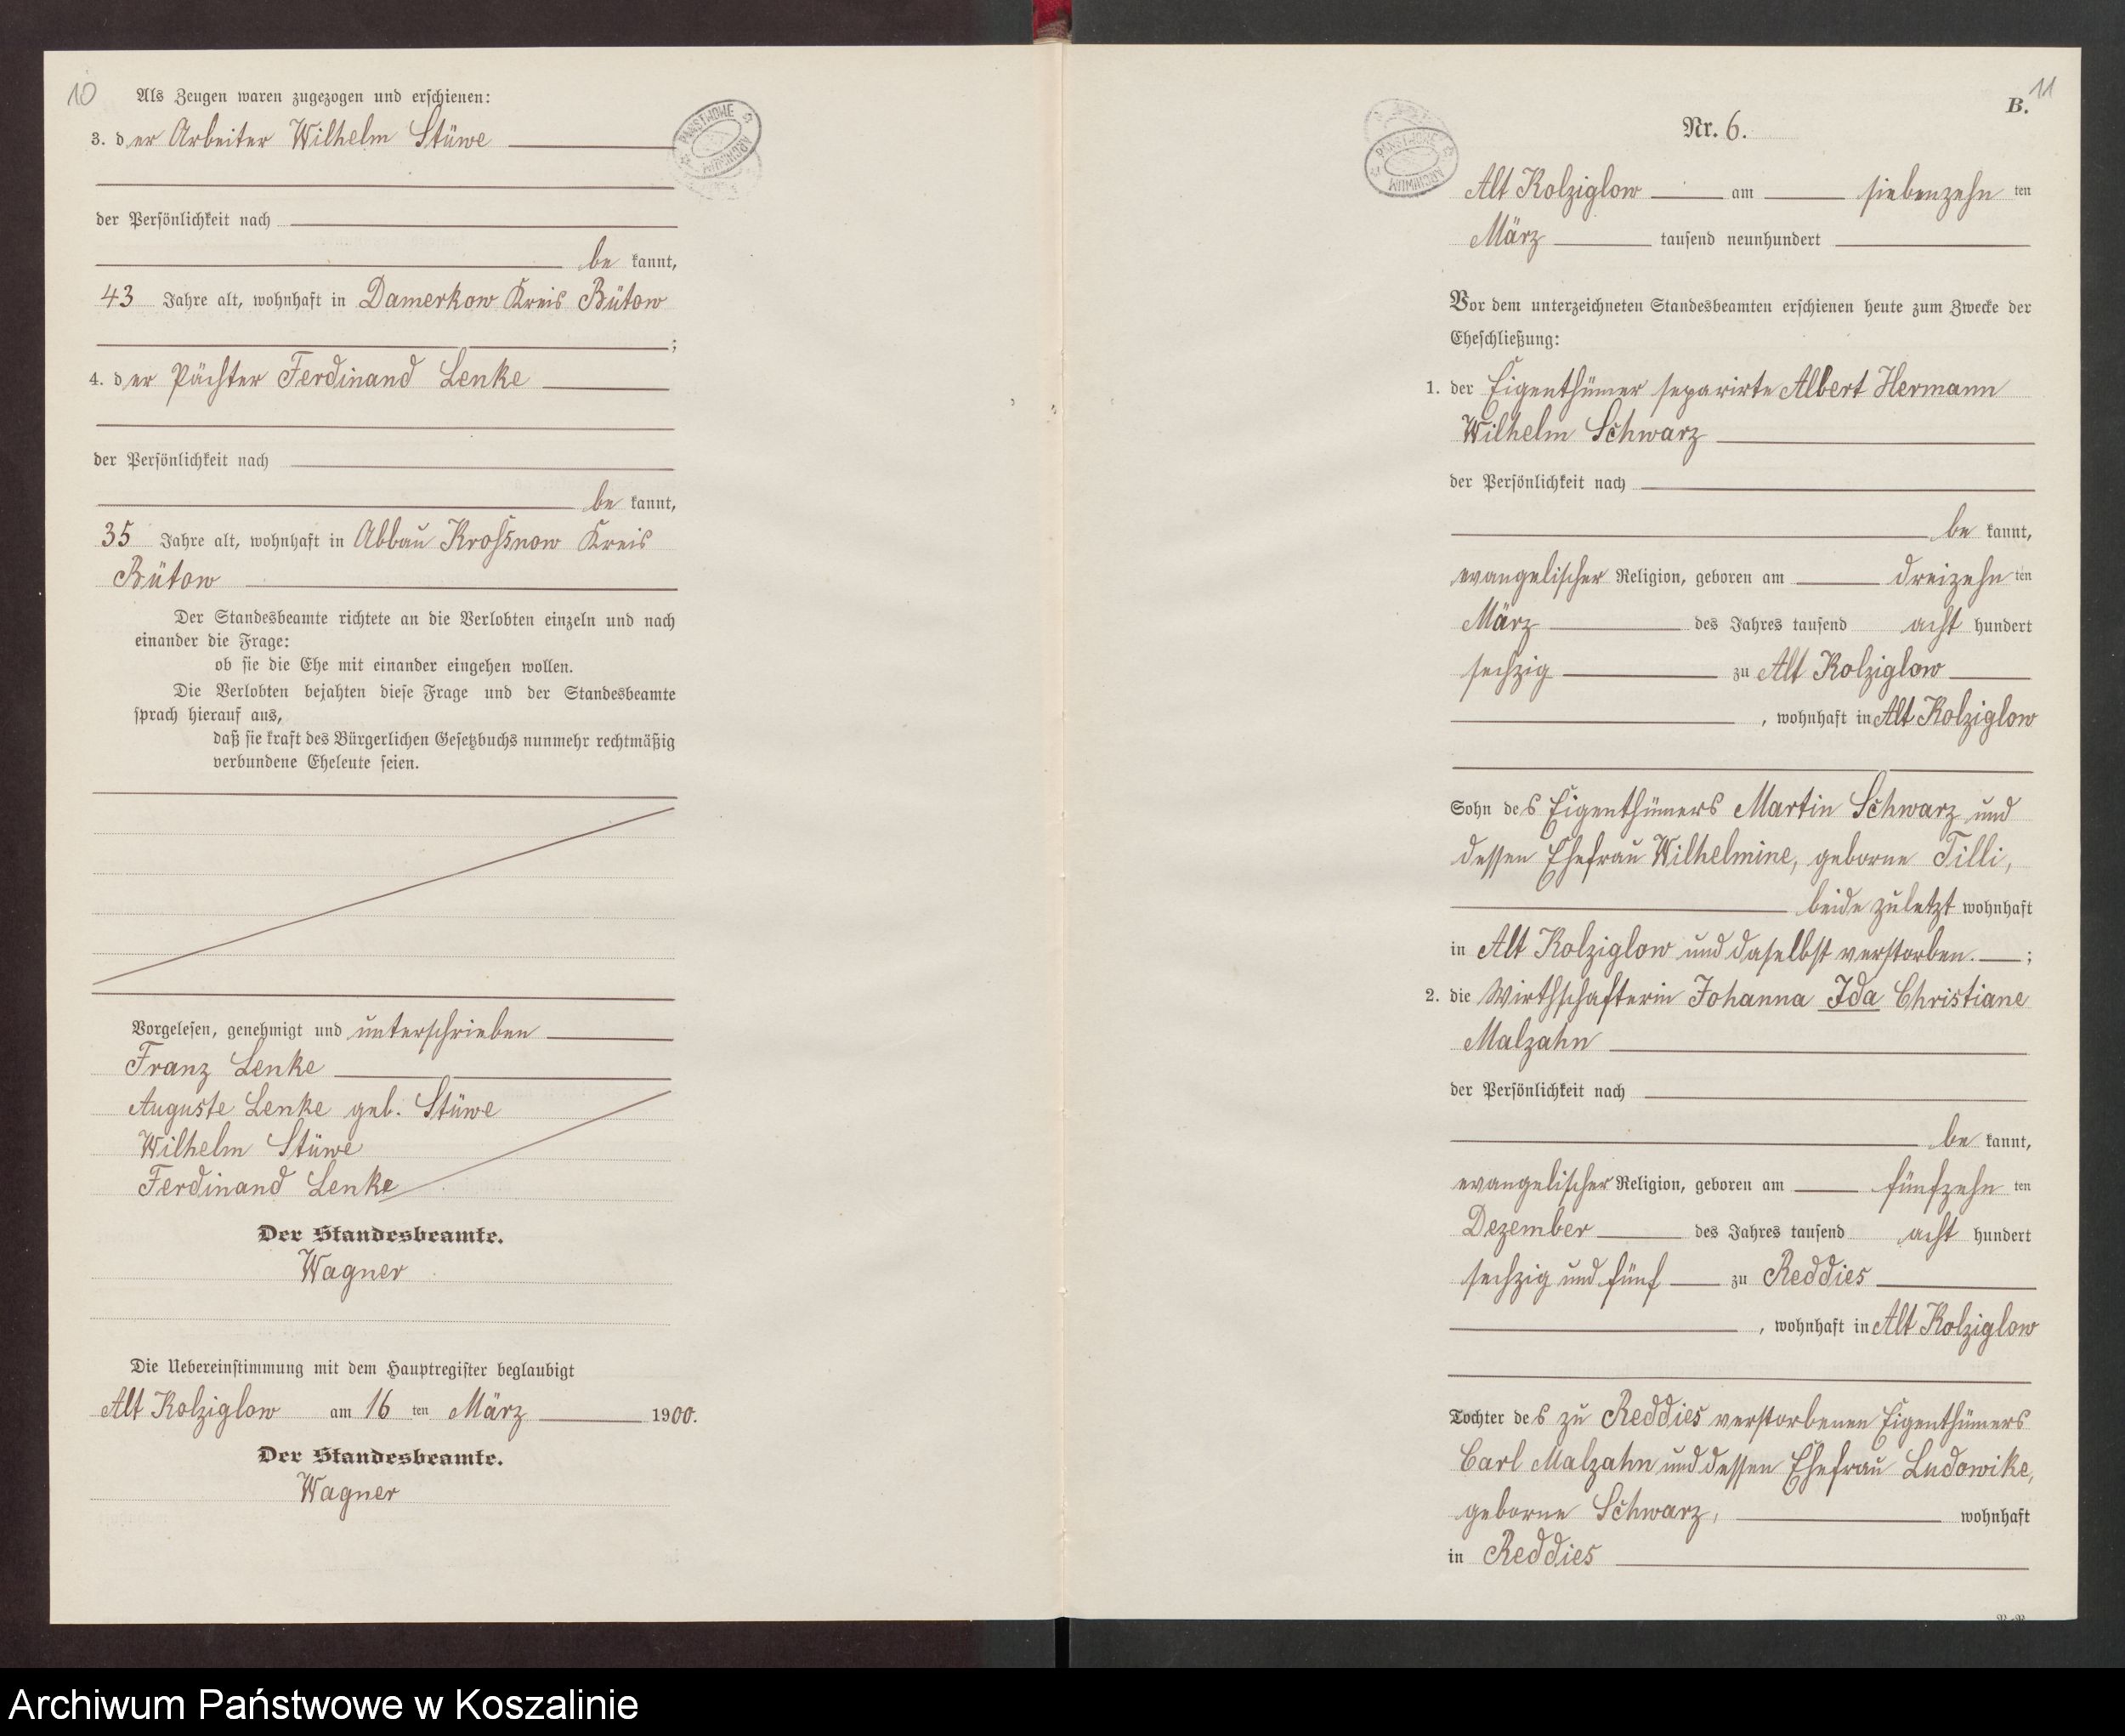 10
Als Zeugen waren zugezogen und erschienen:
3. der Arbeiter Wilhelm Stüwe
der Persönlichkeit nach
be kannt,
43 Jahre alt, wohnhaft in Damerkow Kreis Bütow
;
4. der Pächter Ferdinand Lenke
der Persönlichkeit nach
be kannt,
35 Jahre alt, wohnhaft in Abbau Krossnow Kreis
Bütow
Der Standesbeamte richtete an die Verlobten einzeln und nach
einander die Frage:
ob sie die Ehe mit einander eingehen wollen.
Die Verlobten bejahten diese Frage und der Standesbeamte
sprach hierauf aus,
daß sie kraft des Bürgerlichen Gesetzbuchs nunmehr rechtmäßig
verbundene Eheleute seien.
Vorgelesen, genehmigt und unterschrieben
Franz Lenke
Auguste Lenke geb. Stüwe
Wilhelm Stüwe
Ferdinand Lenke
Der Standesbeamte.
Wagner
Die Uebereinstimmung mit dem Hauptregister beglaubigt
Alt Kolziglow am 16 ten März 1900.
Der Standesbeamte.
Wagner
PAŃSTWOWE ARCHIWUM
11
B.
Nr. 6.
PAŃSTWOWE ARCHIWUM
Alt Kolziglow am siebenzehn ten
März tausend neunhundert
Vor dem unterzeichneten Standesbeamten erschienen heute zum Zwecke der
Eheschließung:
1. der Eigenthümer separirte Albert Hermann
Wilhelm Schwarz
der Persönlichkeit nach
be kannt,
evangelischer Religion, geboren am dreizehn ten
März des Jahres tausend acht hundert
sechzig zu Alt Kolziglow
, wohnhaft in Alt Kolziglow
Sohn des Eigenthümers Martin Schwarz und
dessen Ehefrau Wilhelmine, geborne Tilli,
beide zuletzt wohnhaft
in Alt Kolziglow und daselbst verstorben. ;
2. die Wirthschafterin Johanna Ida Christiane
Malzahn
der Persönlichkeit nach
be kannt,
evangelischer Religion, geboren am fünfzehn ten
Dezember des Jahres tausend acht hundert
sechzig und fünf zu Reddies
, wohnhaft in Alt Kolziglow
Tochter des zu Reddies verstorbenen Eigenthümers
Carl Malzahn und dessen Ehefrau Ludowike,
geborne Schwarz, wohnhaft
in Reddies
Archiwum Państwowe w Koszalinie